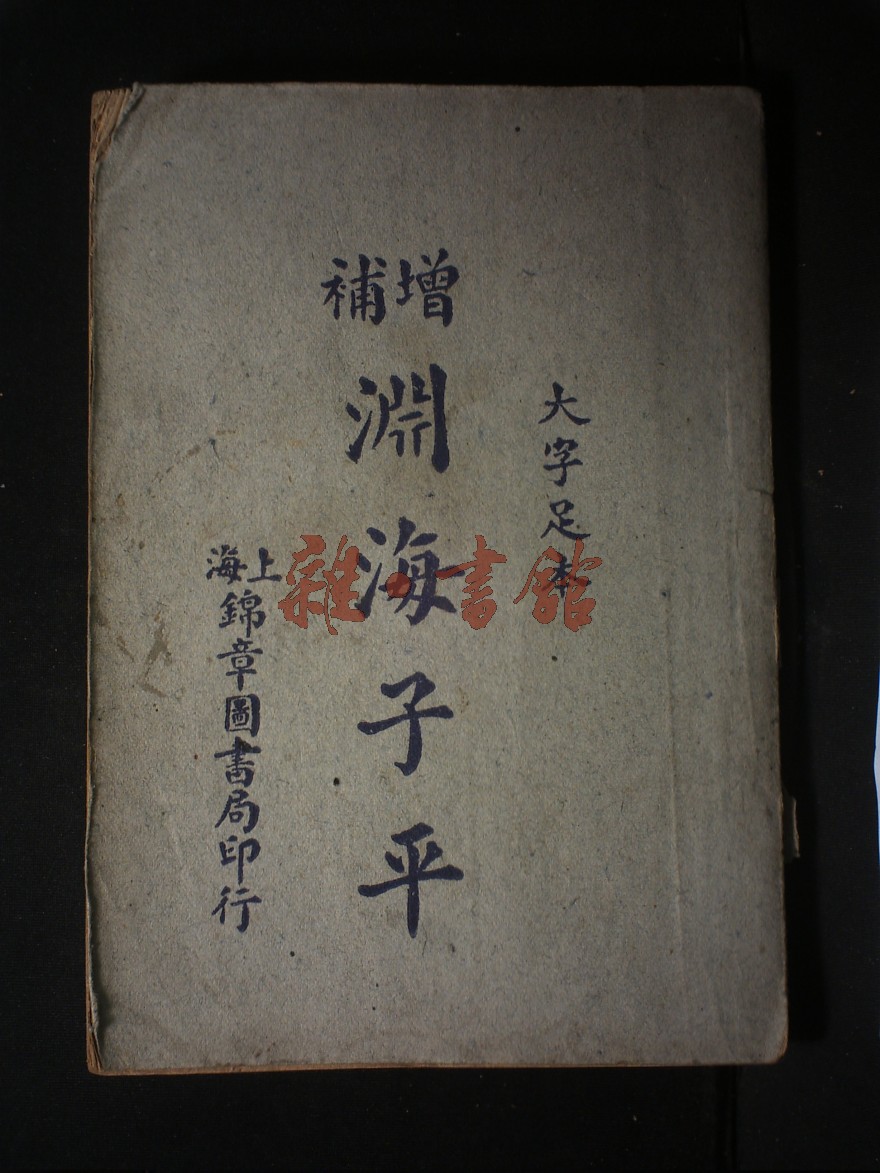 大字足本
增補
淵海子平
上海
錦章圖書局印行
雜·書館